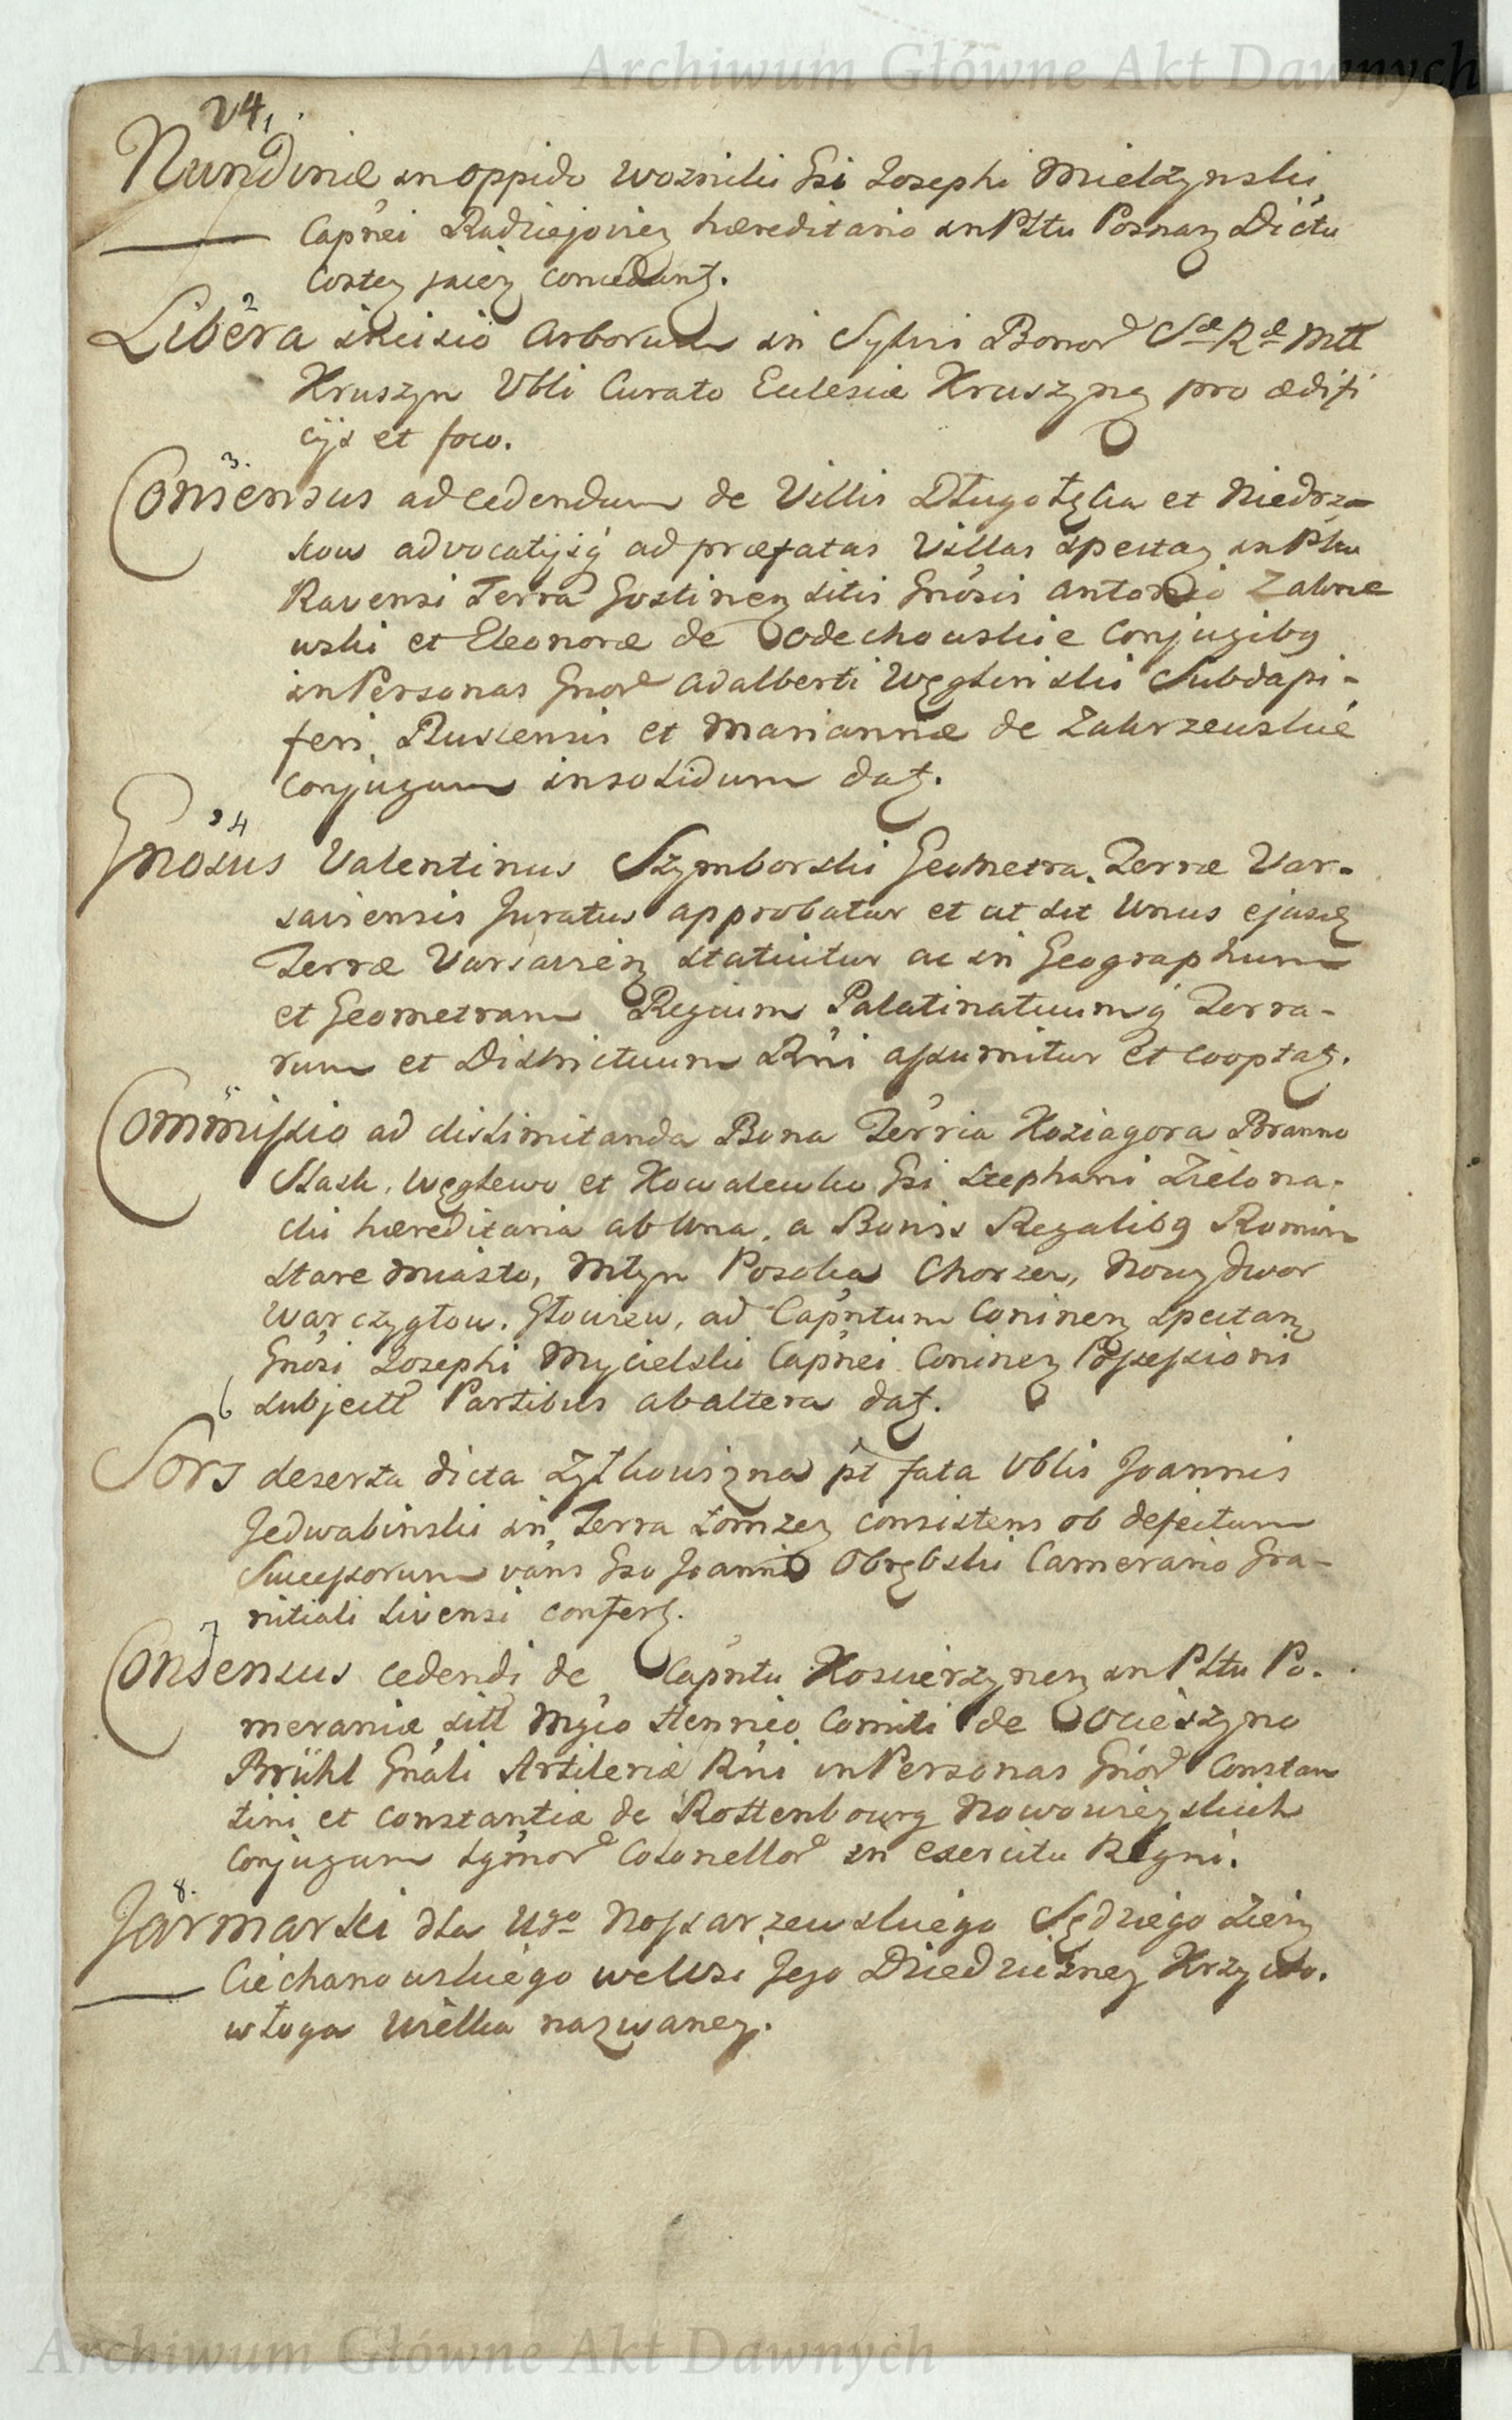 Archiwum Główne Akt Dawnych
24,
Nundinæ in oppido Wozniki Gsi Josephi Mielżynski
Capnei Radziejovien hæreditario in Pttu Posnan Dictu
Costen jacien conceduntr.
2
Libera incisio Arborum in Sylvis Bonor Sæ Ræ Mtt
Kruszyn Vbli Curato Ecclesiæ Kruszynen pro ædifi
cijs et foco.
3.
Consensus ad cedendum de Villis Długołęka et Niedrza-
kow advocatijsq ad præfatas Villas spectan in Pttu
Ravensi Terra Gostinen sitis Gnosis Antonio Zakrze
wski et Eleonoræ de Sodechowskie Conjugibg
in Personas Gnor Adalberti Węglinski Subdapi-
feri Buscensis et Mariannæ de Zakrzewskie
Conjugum insolidum datr.
4
Gnosus Valentinus Szymborski Geometra Terræ Var-
saviensis Juratus approbatur et ut sit Unus ejusd
Terræ Varsavien statuitur ac in Geographum
et Geometram Regium Palatinatuumq Terra-
rum et Districtuum Rni assumitur et cooptatr.
5
Commissio ad dislimitanda Bona Terria Koziagora Branno
Slask, Węglewo et Kowalewko Gsi Stephani Zielona-
cki hæreditaria ab Una, a Bonis Regalibg Rumin
Stare Miasto, Młyn Posoka Chorzen, Nowy dwor
Warczygłow. Głowiew, ad Capntum Coninen spectan
Gnosi Josephi Mycielski Capnei Coninen Possessioni
6 subjectt Partibus ab altera datr.
Sors deserta dicta Zyłkowizna pt fata Vblis Joannis
Jedwabinski in Terra Łomzen consistens ob defectum
Successorum vans Gso Joanni Obrębski Camerario Gra-
nitiali Livensi confertr.
7
Consensus cedendi de Capntu Koscierzynen in Pttu Po-
meraniæ sitt Mgco Henrico Comiti de Ocieszyno
Brühl Gnali Artileriæ Rni in Personas Gnor Constan
tini et Constantiæ de Rottenbourg Nowowieyskich
Conjugum Lgmor Colonellor in exercitu Regni.
8.
Jarmarki dla Ugo Nossarzewskiego Sędziego Ziem
Ciechanowskiego we Wsi Jego Dziedziczney Krzywo-
włoga Wielka nazwaney.
Archiwum Główne Akt Dawnych